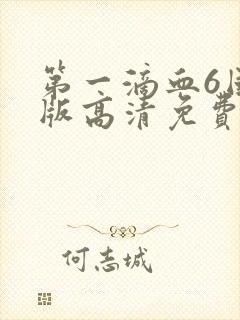 第一滴血6
版高清免费
何志城